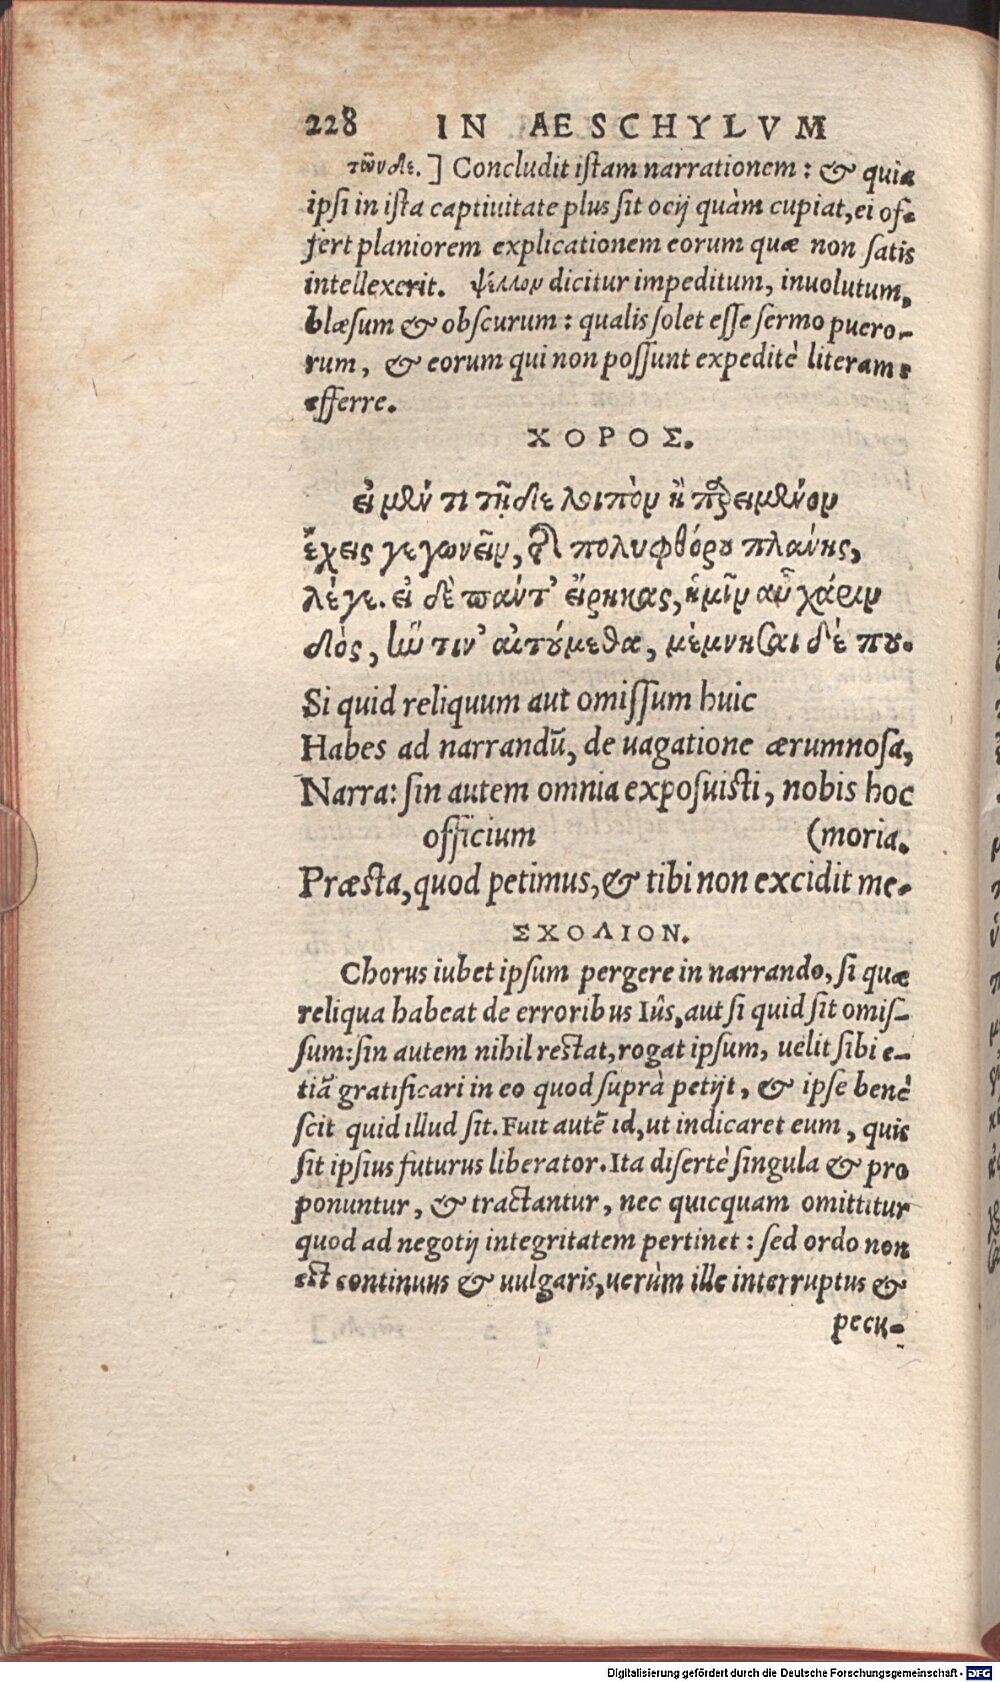 228 IN AESCHYLVM
τῶνδε.] Concludit istam narrationem: & quia
ipsi in ista captiuitate plus sit ocij quàm cupiat, ei of-
fert planiorem explicationem eorum quæ non satis
intellexerit. ψέλλον dicitur impeditum, inuolutum,
blæsum & obscurum: qualis solet esse sermo puero-
rum, & eorum qui non possunt expeditè literams
efferre.
ΧΟΡΟΣ.
εἰ μὲν τι τῇδε λοιπὸν ἢ παρειμένον
ἔχεις γεγωνεῖν, τῆς πολυφθόρου πλάνης,
λέγε. εἰ δὲ πάντ' εἴρηκας, ἡμῖν αὖ χάριν
δὸς, ἥν τιν' αἰτούμεθα, μέμνησαι δέ που.
Si quid reliquum aut omissum huic
Habes ad narrandũ, de uagatione ærumnosa,
Narra: sin autem omnia exposuisti, nobis hoc
officium (moria.
Præsta, quod petimus, & tibi non excidit me-
ΣΧΟΛΙΟΝ.
Chorus iubet ipsum pergere in narrando, si quæ
reliqua habeat de erroribus Iûs, aut si quid sit omis-
sum: sin autem nihil restat, rogat ipsum, uelit sibi e-
tiã gratificari in eo quod suprà petijt, & ipse benè
scit quid illud sit. Fuit autẽ id, ut indicaret eum, quis
sit ipsius futurus liberator. Ita disertè singula & pro
ponuntur, & tractantur, nec quicquam omittitur
quod ad negotij integritatem pertinet: sed ordo non
est continuus & uulgaris, uerùm ille interruptus &
pecu-
Digitalisierung gefördert durch die Deutsche Forschungsgemeinschaft - DFG